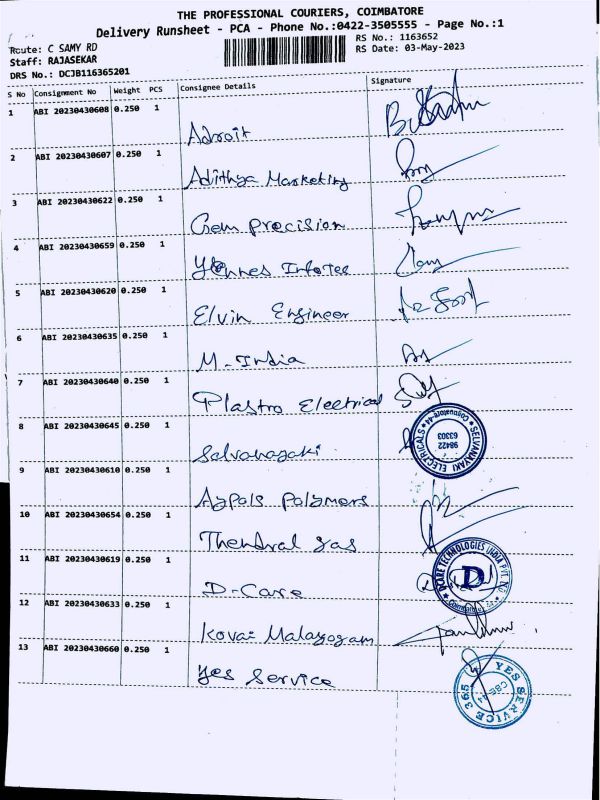 THE PROFESSIONAL COURIERS, COIMBATORE
Delivery Runsheet - PCA - Phone No.:0422-3505555 - Page No.:1
Route: C SAMY RD
RS No.: 1163652
Staff: RAJASEKAR
RS Date: 03-May-2023
DRS No.: DCJB116365201
S No Consignment No Weight PCS Consignee Details Signature
1 ABI 20230430608 0.250 1 Adroit
2 ABI 20230430607 0.250 1 Adithya Marketing
3 ABI 20230430622 0.250 1 Gem Precision
4 ABI 20230430659 0.250 1 Infotec
5 ABI 20230430620 0.250 1 Elvin Engineer
6 ABI 20230430635 0.250 1 M-India
7 ABI 20230430640 0.250 1 Plastro Electrical
8 ABI 20230430645 0.250 1 Salvanayaki
SELVANAYAKI ELECTRICALS
Coimbatore-44
98422
63303
9 ABI 20230430610 0.250 1 Polymers
10 ABI 20230430654 0.250 1 Thendral gas
11 ABI 20230430619 0.250 1 D-Care
DCARE TECHNOLOGIES INDIA PVT. NO
D
12 ABI 20230430633 0.250 1 Kovai Malayogam
13 ABI 20230430660 0.250 1 Yes Service
YES SERVICE 365
CBE-44